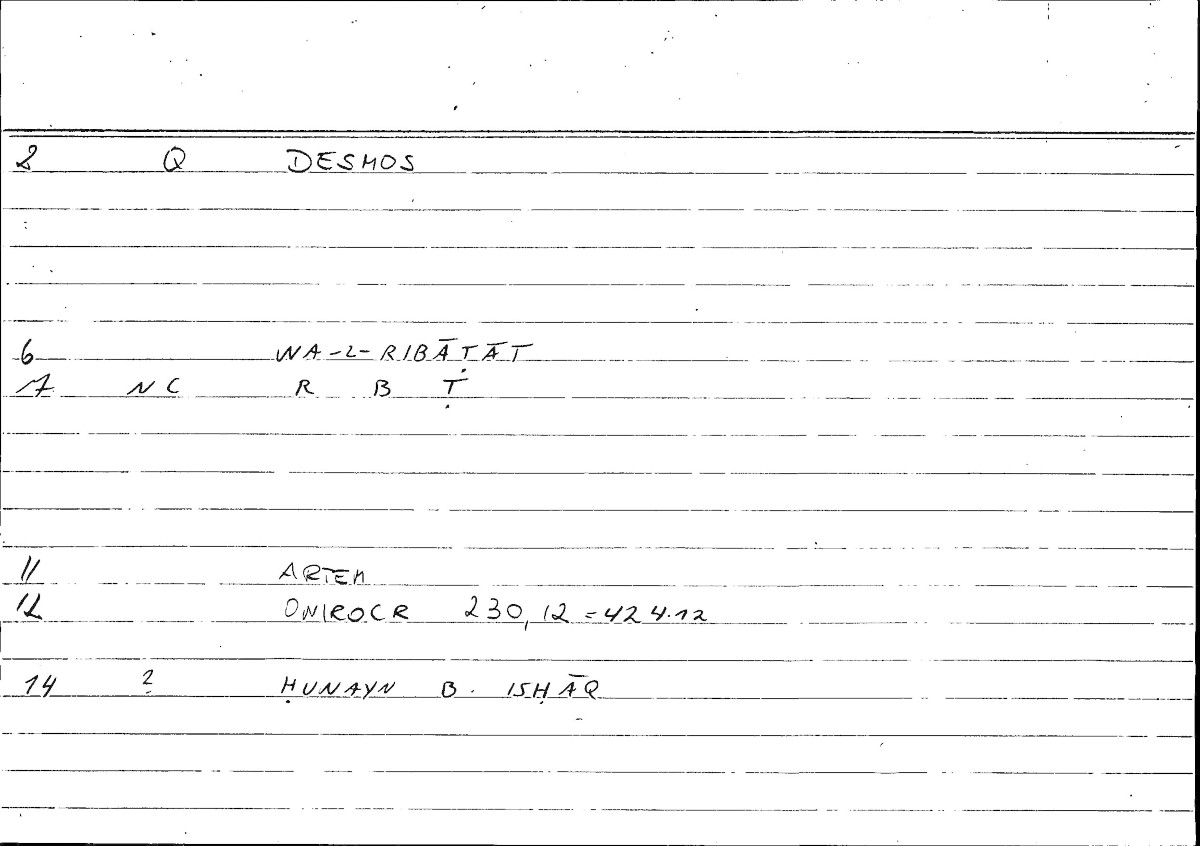 2 Q DESMOS
6 WA-L-RIBĀṬĀT
7 NC R B Ṭ
11 ARTEM
12 ONIROCR 230,12=424.12
14 ? ḤUNAYN B. ISḤĀQ